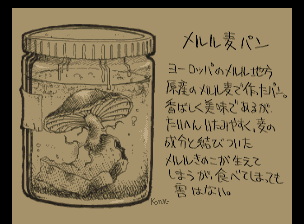 メルル麦パン
ヨーロッパのメルル地方
原産のメルル麦で作ったパン。
香ばしく美味であるが、
たいへんいたみやすく、麦の
成分と結びついた
メルルきのこが生えて
しまうが、食べてしまっても
害はない。